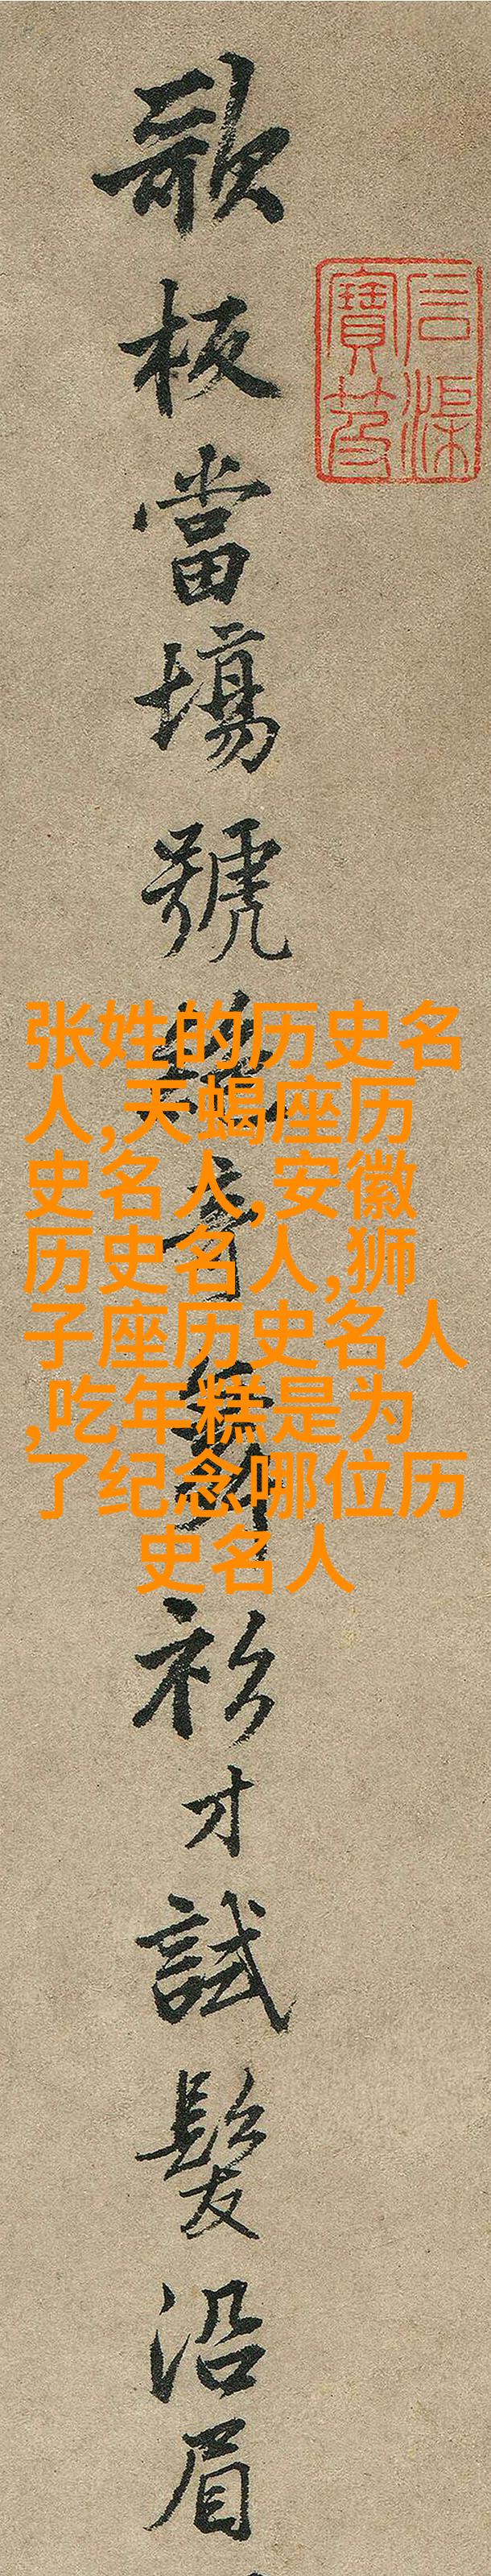 歌板當場號絶奇舞衫才試髮沿眉
石渠
寶笈
张姓的历史名
人,天蝎座历
史名人,安徽
历史名人,狮
子座历史名人
,吃年糕是为
了纪念哪位历
史名人